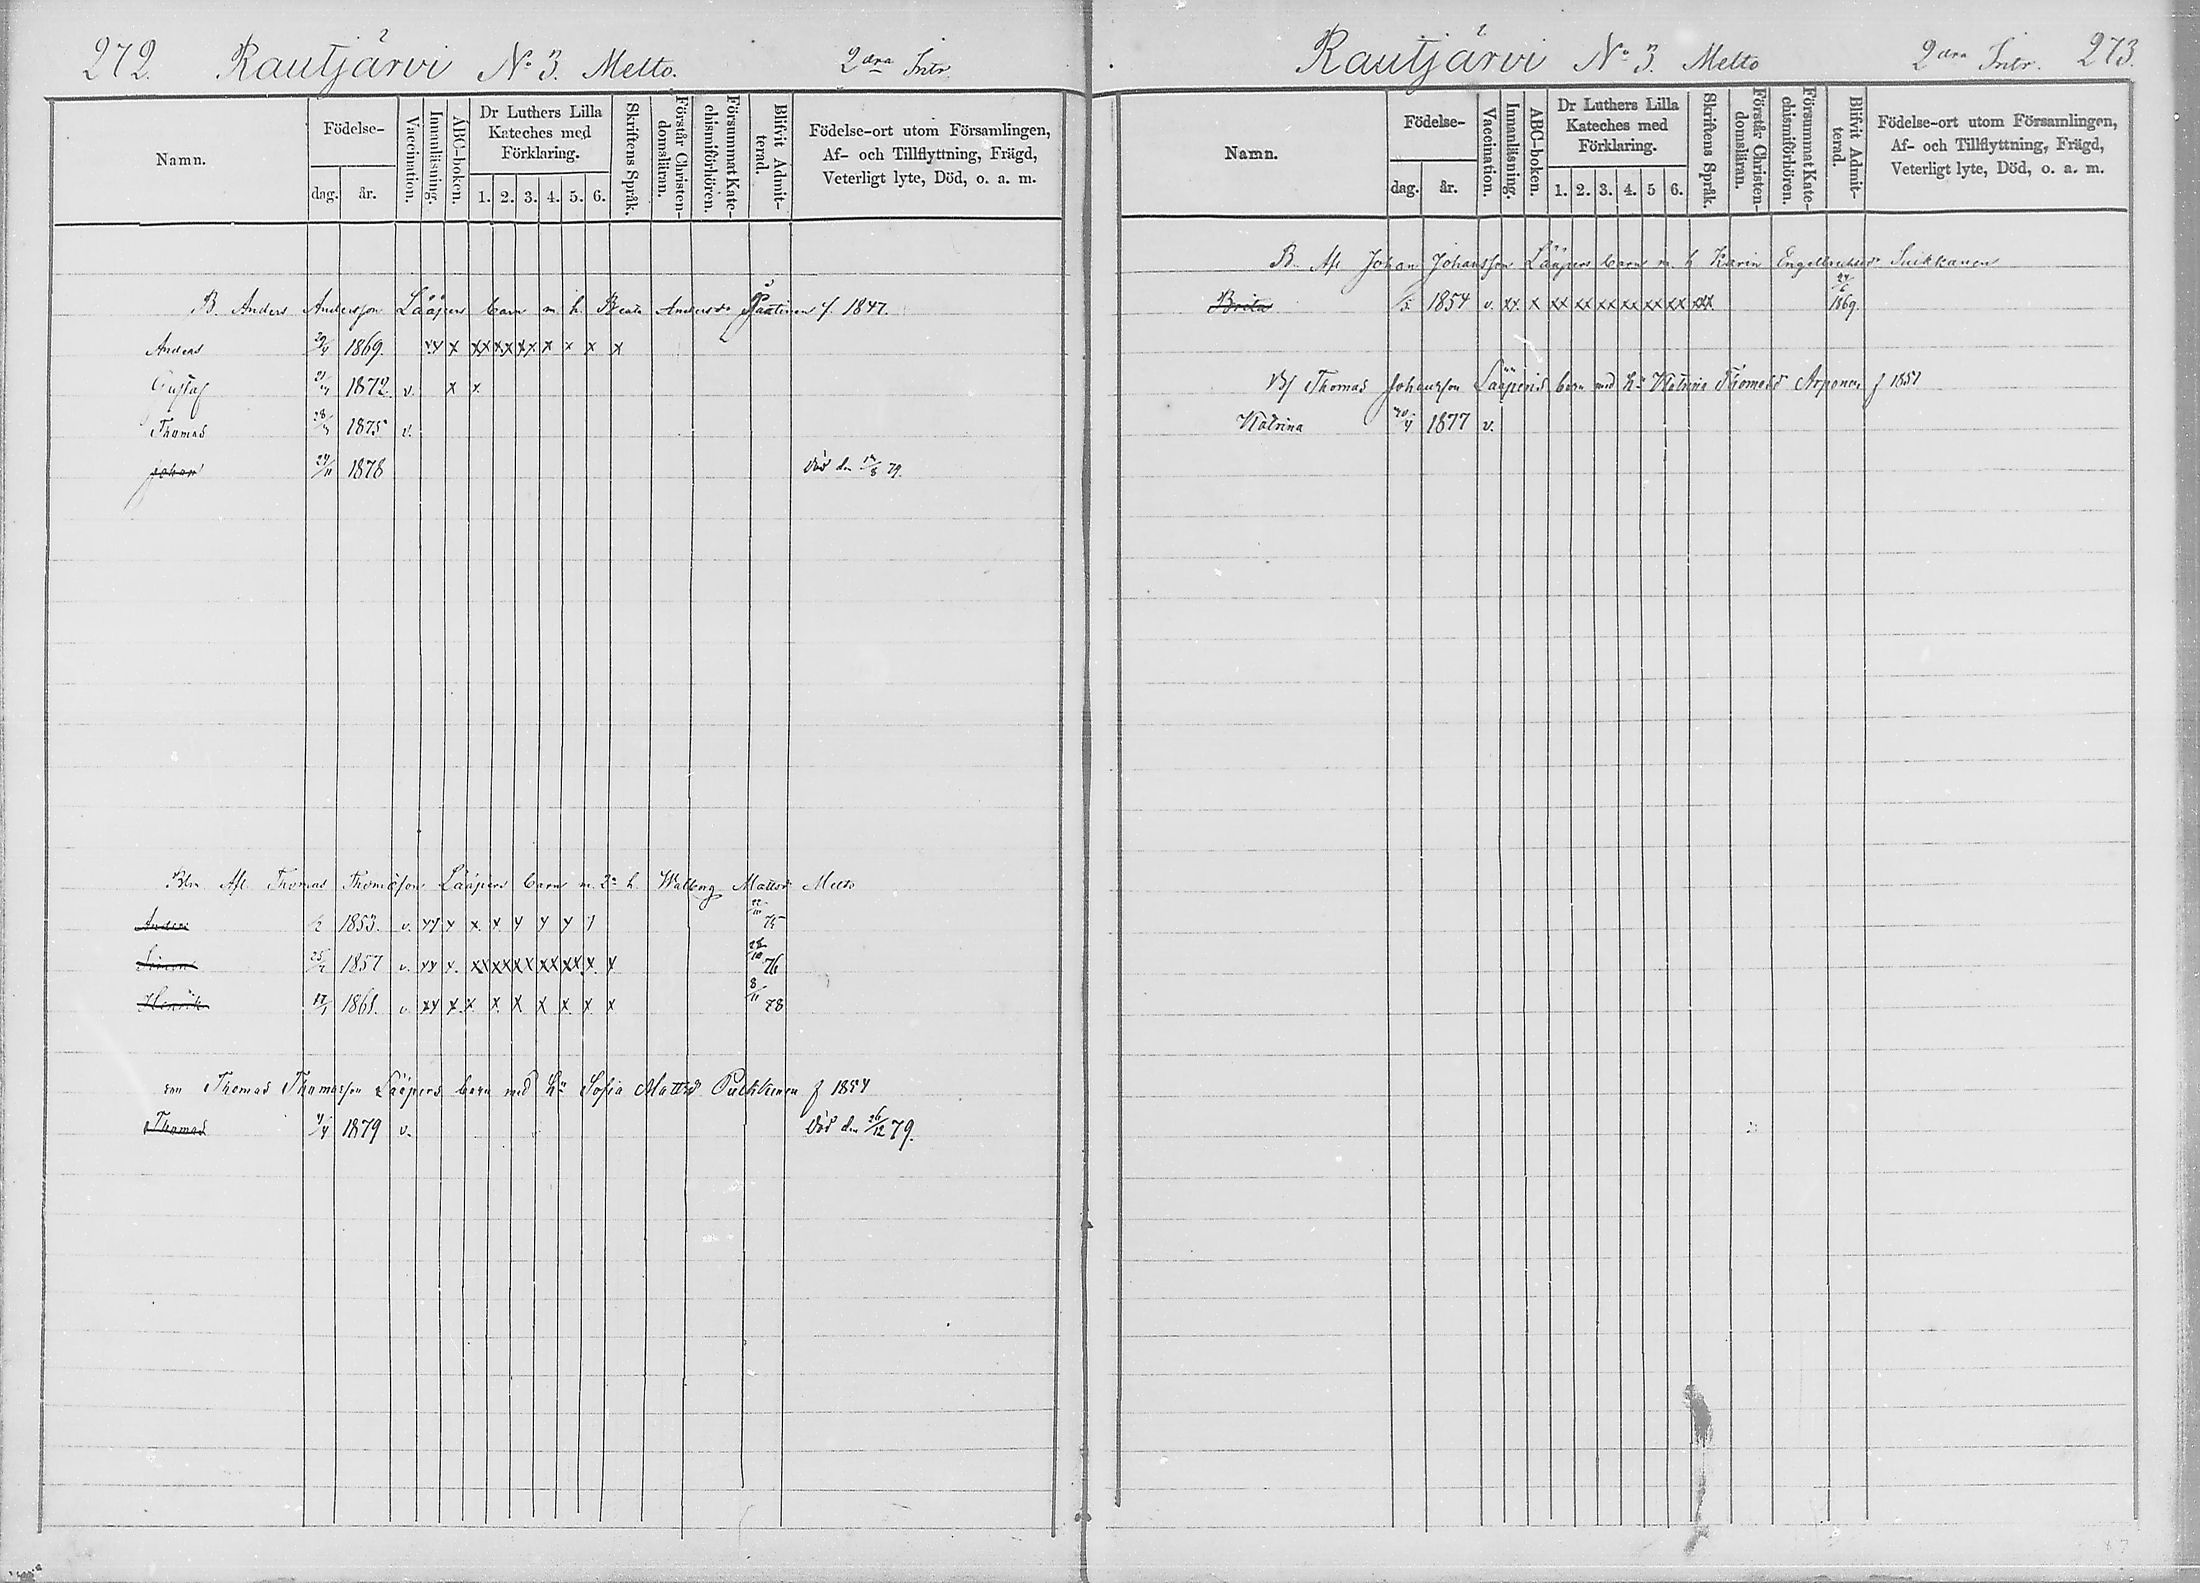 272. Rautjärvi No 3. Melto. 2dra Intr.
Namn. Födelse- dag. år. Vaccination. Innanläsning. ABC-boken. Dr Luthers Lilla Kateches med Förklaring. 1. 2. 3. 4. 5. 6. Skriftens Språk. Förstår Christendomsläran. Försummat Katechismiförhören. Blifvit Admitterad. Födelse-ort utom Församlingen, Af- och Tillflyttning, Frägd, Veterligt lyte, Död, o. a. m.
B. Anders Andersson Lääpers barn m. h. Beata Andersdr f. 1847.
Anders 29/4 1869. xx x xx xx xx x x x x
Gustaf 1872. v. x x
Thomas 1875 v.
Johan 24/11 1878 död den 79.
Afl. Thomas Thomasson Lääpers barn m. 2a h. Walborg Mattsdr Melto
Anders 1853. v. xx x x x x x x x 75
Simon 1857 v. xx x. xx xx xx xx xx x. x 76
Henrik 1861. v. xx x x x x x x x x 8/11 78
son Thomas Thomasson Lääpers barn med hu Sofia Mattsd f 1854
Thomas 1879 v. död den 26/12 79.
Rautjärvi No 3. Melto 2dra Intr. 273.
Namn. Födelse- dag. år. Vaccination. Innanläsning. ABC-boken. Dr Luthers Lilla Kateches med Förklaring. 1. 2. 3. 4. 5 6. Skriftens Språk. Förstår Christendomsläran. Försummat Katechismiförhören. Blifvit Admitterad. Födelse-ort utom Församlingen, Af- och Tillflyttning, Frägd, Veterligt lyte, Död, o. a. m.
B. Afl Johan Johansson Lääpers barn m. h Karin Engelbrechtsdr Suikkanen
Brita 1854 v. xx. x xx xx xx xx xx xx xxx. 1869.
Thomas Johansson Lääperis barn med hu Katrina Thomasd Arponen f 1851
Katrina 1877 v.